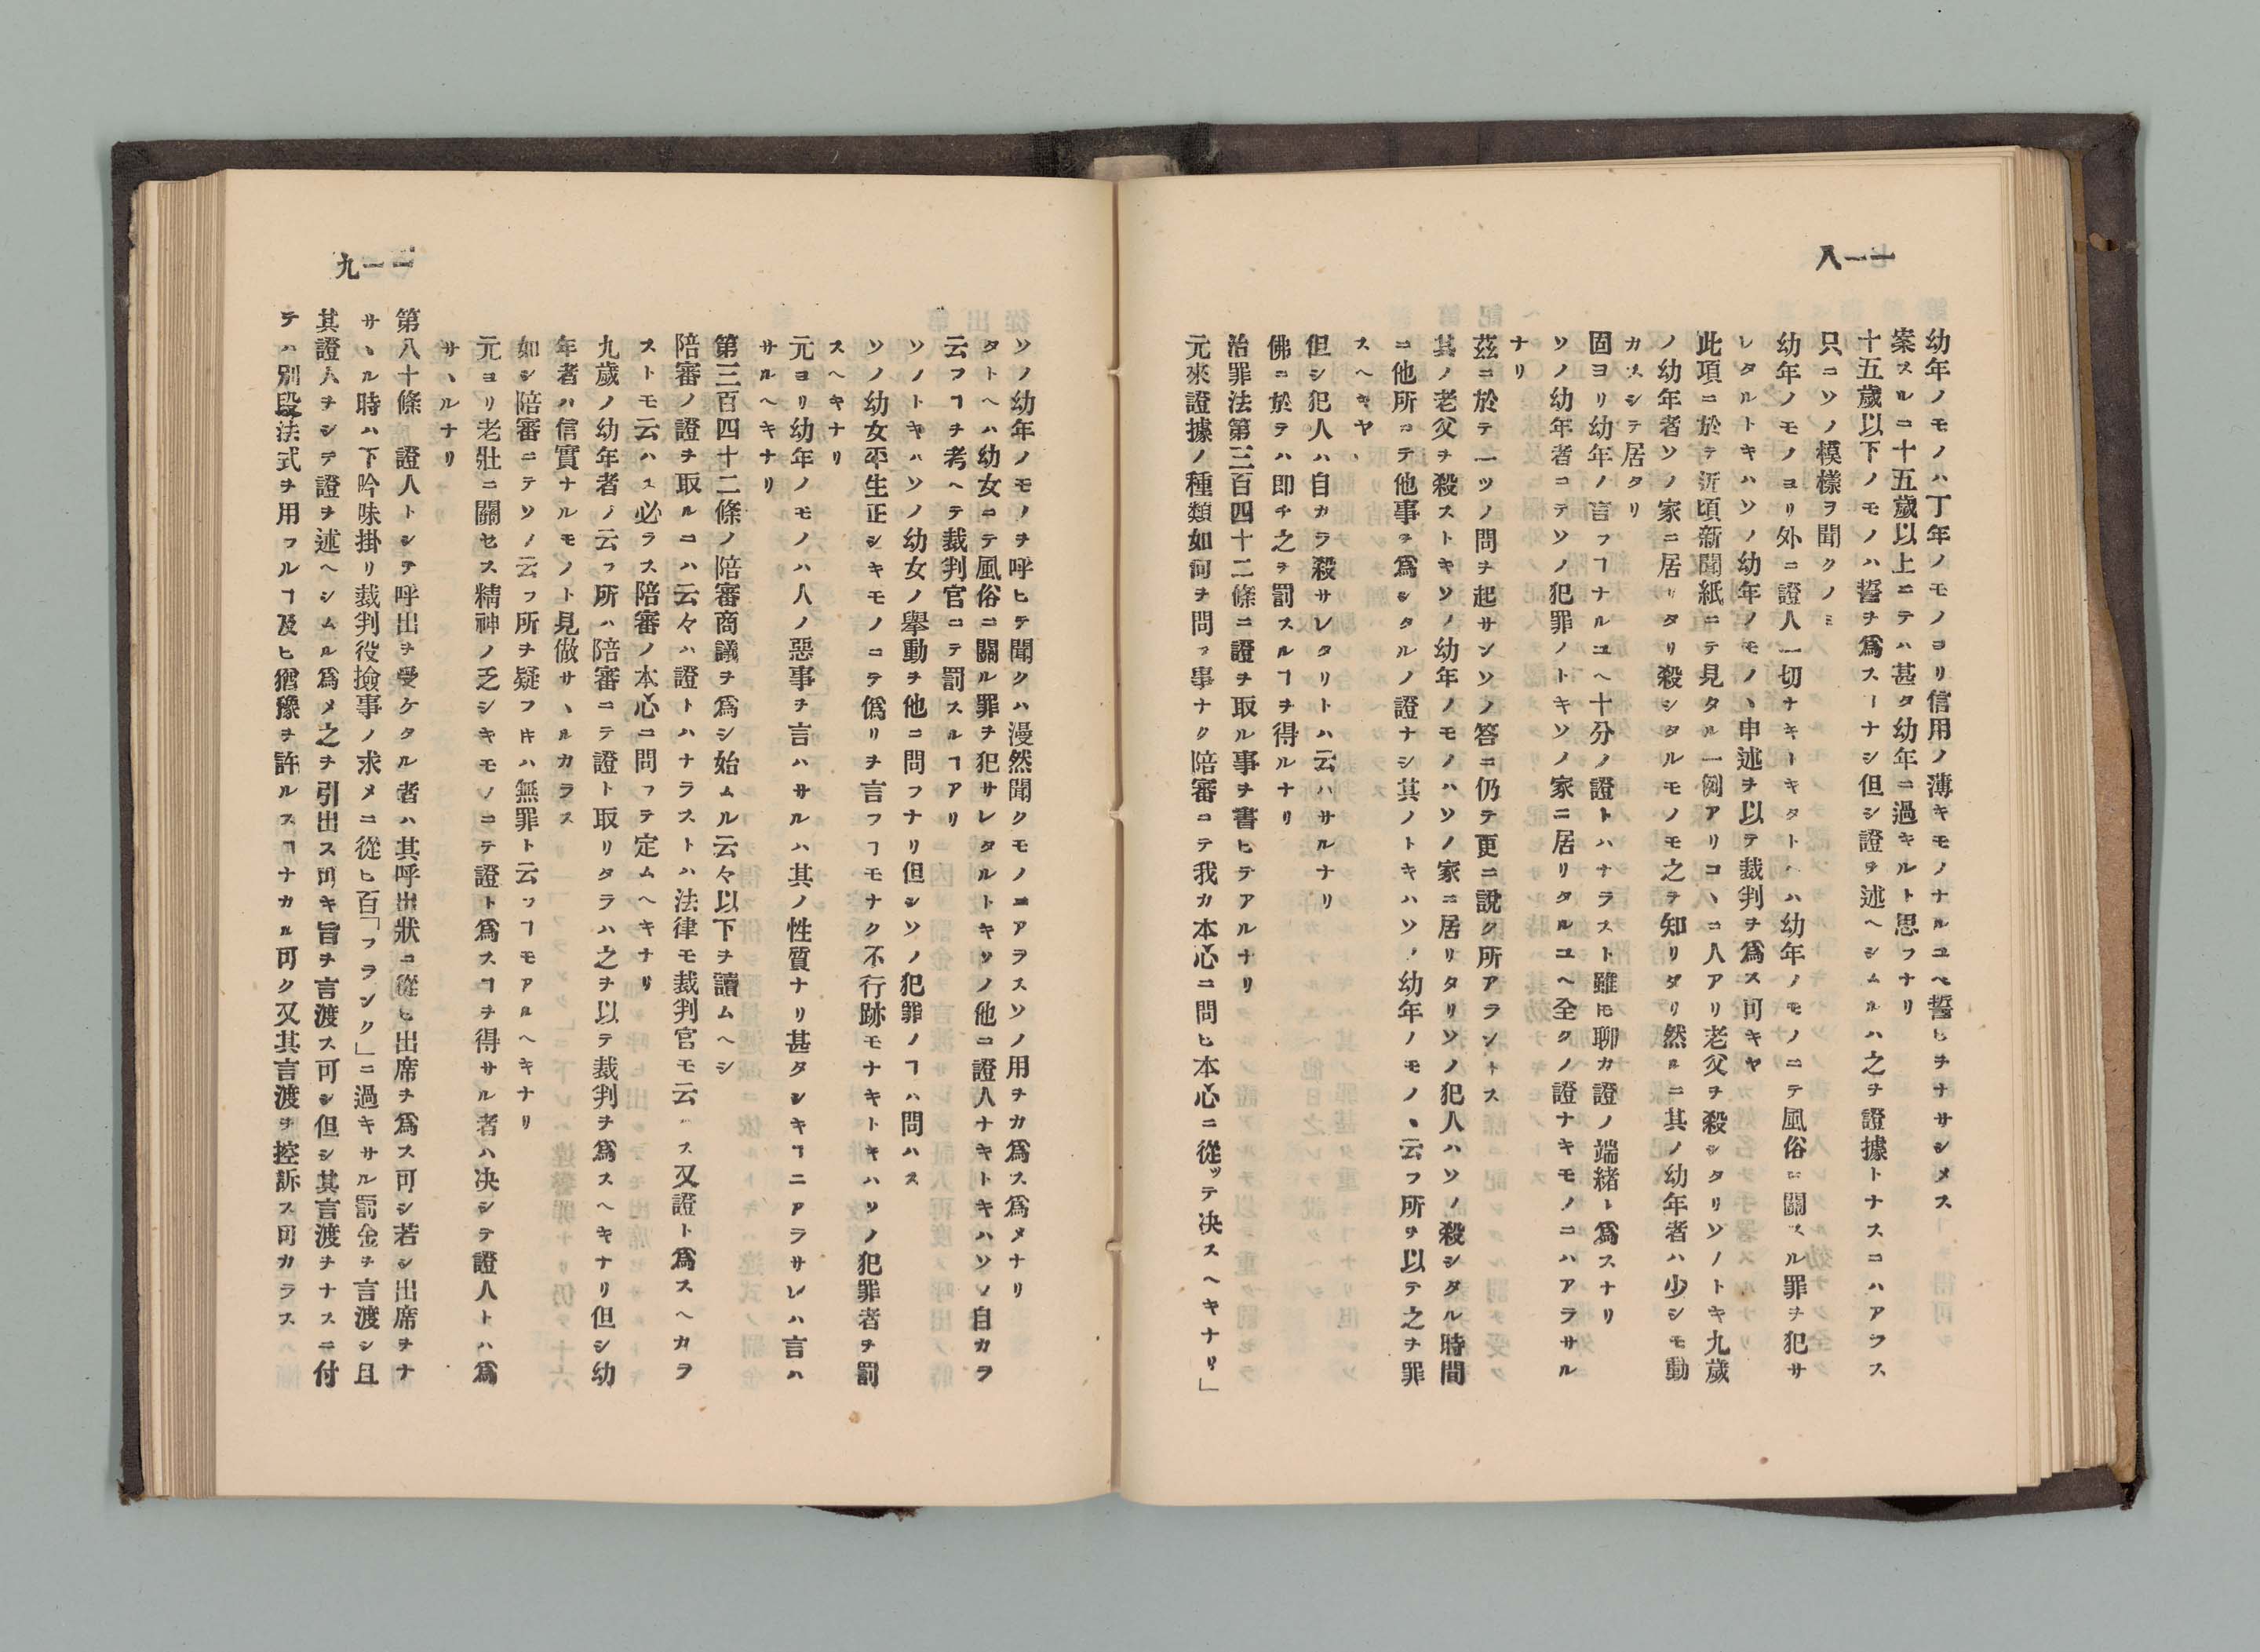 一一八
幼年ノモノハ丁年ノモノヨリ信用ノ薄キモノナルユヘ誓ヒヲナサシメス
案スルニ十五歲以上ニテハ甚タ幼年ニ過キルト思フナリ
十五歲以下ノモノハ誓ヲ爲スーナシ但シ證ヲ述ヘシムルハ之ヲ證據トナスコハアラス
只ニソノ模樣ヲ聞クノミ
幼年ノモノヨリ外ニ證人一切ナキーキタトヘハ幼年ノモノニテ風俗ニ關スル罪ヲ犯サ
レタルトキハソノ幼年ノモノヽ申述ヲ以テ裁判ヲ爲ス可キヤ
此項ニ於テ近頃新聞紙ニテ見タル一例アリコヽニ人アリ老父ヲ殺シタリソノトキ九歲
ノ幼年者ソノ家ニ居リタリ殺シタルモノモ之ヲ知リタリ然ルニ其ノ幼年者ハ少シモ動
カスシテ居タリ
固ヨリ幼年ノ言フヿナルユヘ十分ノ證トハナラスト雖モ聊カ證ノ端緒ト爲スナリ
ソノ幼年者ニテソノ犯罪ノトキソノ家ニ居リタルユヘ全クノ證ナキモノニハアラサル
ナリ
茲ニ於テ一ツノ問ヲ起サンソノ答ニ仍テ更ニ說ク所アラントス
其ノ老父ヲ殺ストキソノ幼年ノモノハソノ家ニ居リタリソノ犯人ハソノ殺シタル時間
ニ他所ニテ他事ヲ爲シタルノ證ナシ其ノトキハソノ幼年ノモノヽ云フ所ヲ以テ之ヲ罪
スヘキヤ、
但シ犯人ハ自カラ殺サレタリトハ云ハサルナリ
佛ニ於テハ即チ之ヲ罰スルヿヲ得ルナリ
治罪法第三百四十二條ニ證ヲ取ル事ヲ書ヒテアルナリ
元來證據ノ種類如何ヲ問フ事ナク陪審ニテ我カ本心ニ問ヒ本心ニ從ッテ决スヘキナリ」
一一九
ソノ幼年ノモノヲ呼ヒテ聞クハ漫然聞クモノニアラスソノ用ヲカ爲ス爲メナリ
タトヘハ幼女ニテ風俗ニ關ル罪ヲ犯サレタルトキソノ他ニ證人ナキトキハソノ自カラ
云フヿヲ考ヘテ裁判官ニテ罰スルヿアリ
ソノトキハソノ幼女ノ擧動ヲ他ニ問フナリ但シソノ犯罪ノヿハ問ハス
ソノ幼女平生正シキモノニテ僞リヲ言フヿモナク不行跡モナキトキハソノ犯罪者ヲ罰
スヘキナリ
元ヨリ幼年ノモノハ人ノ惡事ヲ言ハサルハ其ノ性質ナリ甚タシキヿニアラサレハ言ハ
サルヘキナリ
第三百四十二條ノ陪審商議ヲ爲シ始ムル云々以下ヲ讀ムヘシ
陪審ノ證ヲ取ルニハ云々ハ證トハナラストハ法律モ裁判官モ云ハス又證ト爲スヘカラ
ストモ云ハス必ラス陪審ノ本心ニ問フテ定ムヘキナリ
九歲ノ幼年者ノ云フ所ハ陪審ニテ證ト取リタラハ之ヲ以テ裁判ヲ爲スヘキナリ但シ幼
年者ハ信實ナルモノト見做サヽルカラス
如シ陪審ニテソノ云フ所ヲ疑フキハ無罪ト云フヿモアルヘキナリ
元ヨリ老壯ニ關セス精神ノ乏シキモノニテ證ト爲スヿヲ得サル者ハ决シテ證人トハ爲
サヽルナリ
第八十條 證人トシテ呼出ヲ受ケタル者ハ其呼出狀ニ從ヒ出席ヲ爲ス可シ若シ出席ヲナ
サヽル時ハ下吟味掛リ裁判役撿事ノ求メニ從ヒ百「フランク」ニ過キサル罰金ヲ言渡シ且
其證人ヲシテ證ヲ述ヘシムル爲メ之ヲ引出ス可キ旨ヲ言渡ス可シ但シ其言渡ヲナスニ付
テハ別段法式ヲ用フルヿ及ヒ猶豫ヲ許ルスヿナカル可ク又其言渡ヲ控訴ス可カラス